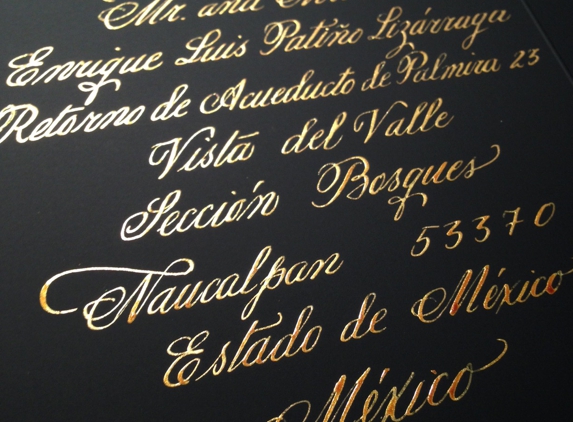 Mr. and
Enrique Luis Patiño Lizárraga
Retorno de Acueducto de Palmira 23
Vista del Valle
Sección Bosques
Naucalpan 53370
Estado de México
México